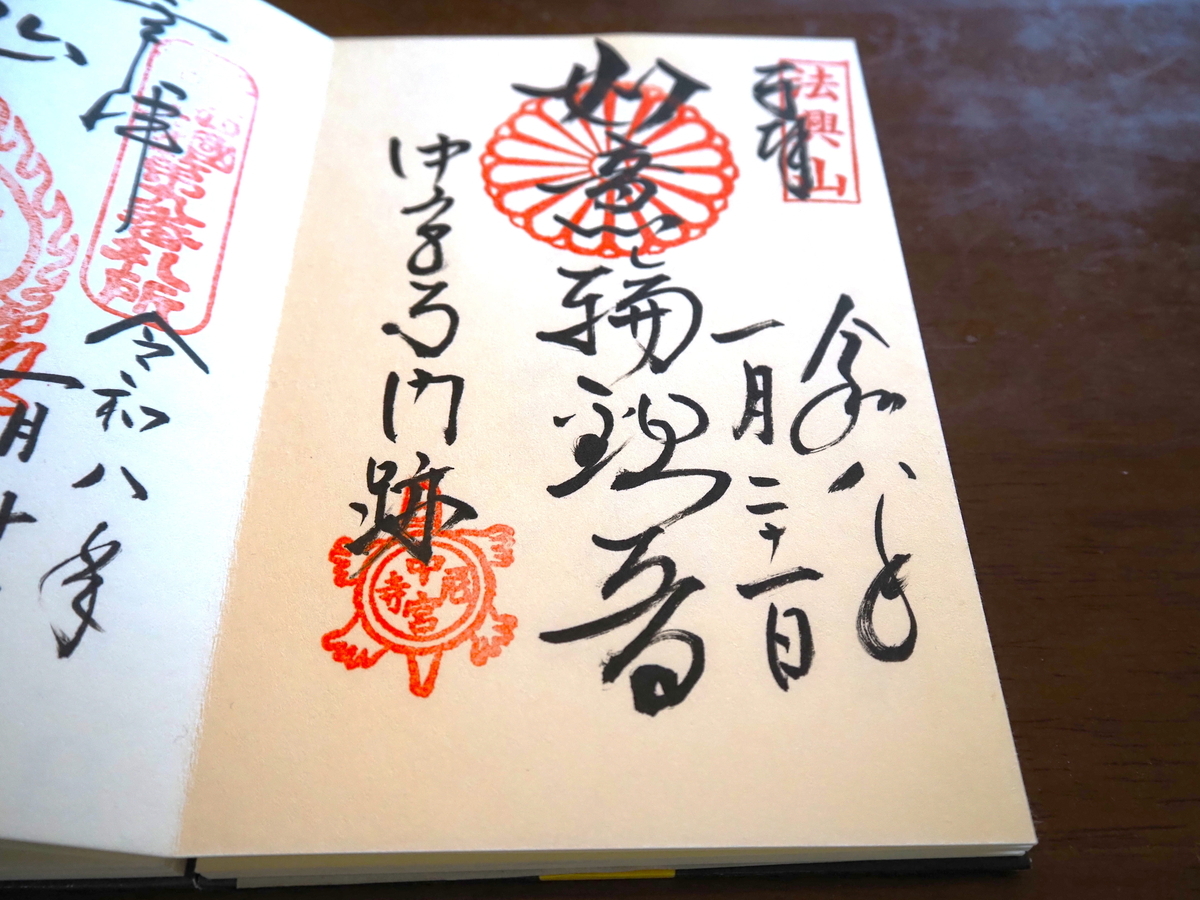 法興山
奉拝
令和八年
一月二十一日
如意輪観音
中宮寺門跡
中宮尼寺
第九番札所
令和八年
月